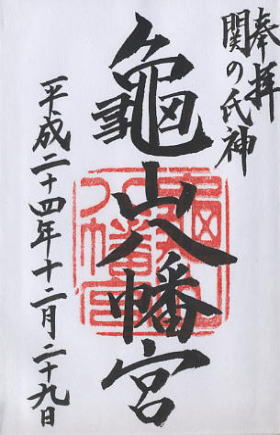 奉拝
関の氏神
龜山八幡宮
平成二十四年十二月二十九日